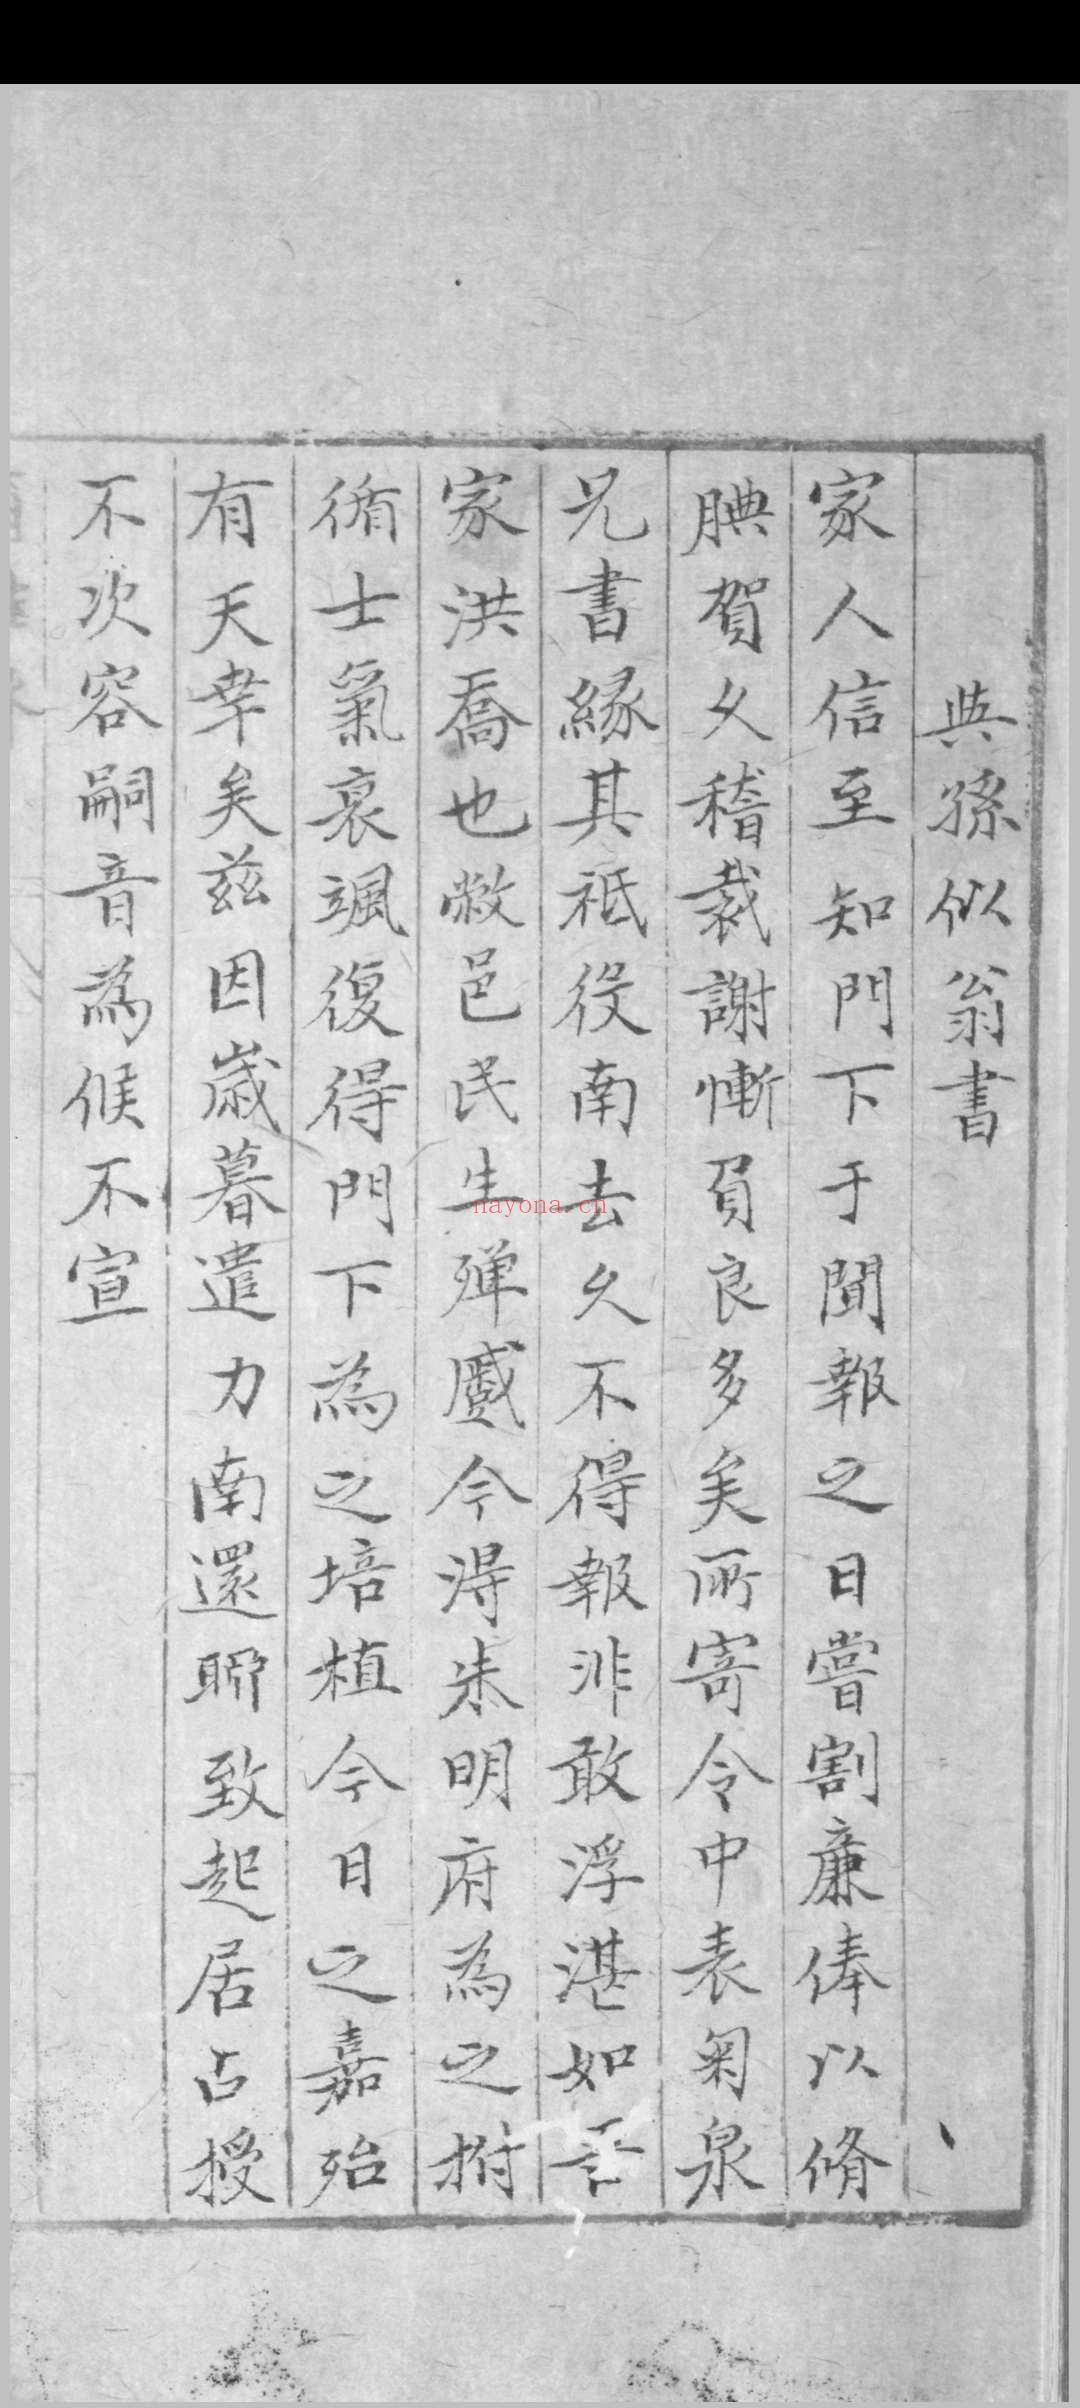 與孫似翁書
家人信至知門下于聞報之日嘗割廉俸以脩
腆賀久稽裁謝慚負良多矣所寄令中表菊泉
兄書緣其祗役南去久不得報非敢浮湛如
家洪喬也敝邑民生殫蹙今得朱明府為之拊
循士氣衰颯復得門下為之培植今日之嘉殆
有天幸矣茲因歲暮遣力南還聊致起居占授
不次容嗣音為候不宣
nayona.cn